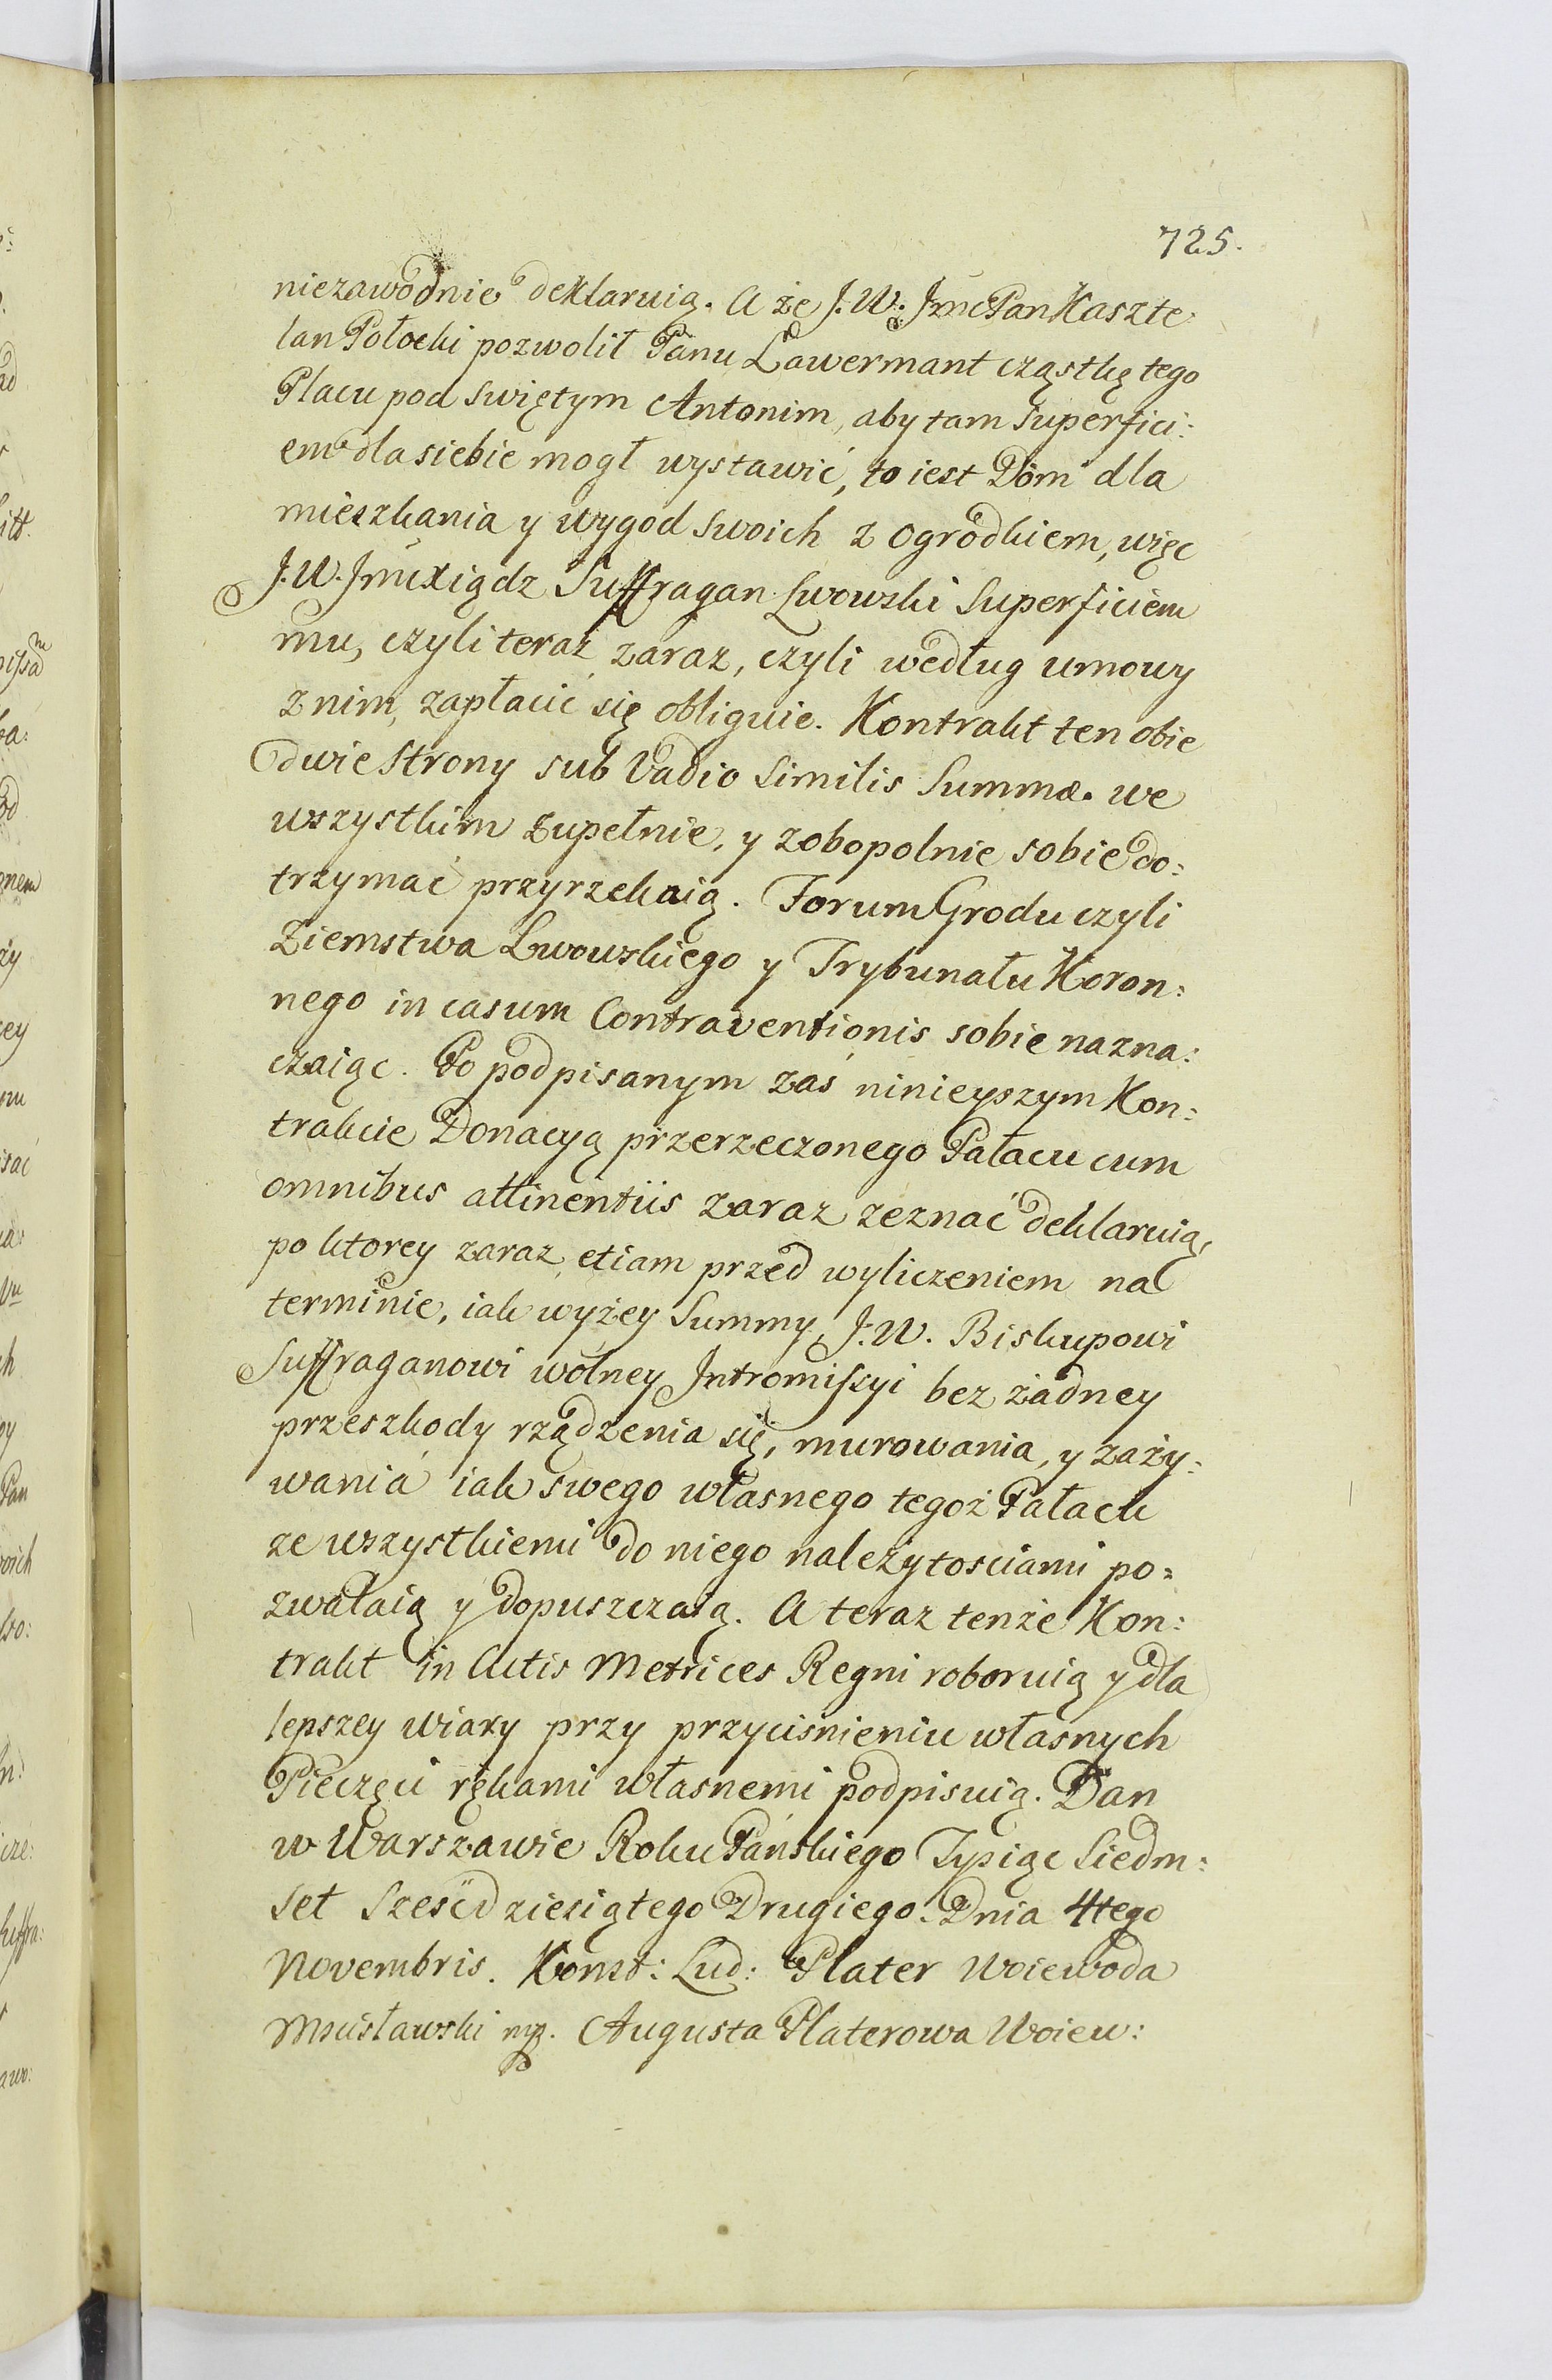 725.
niezawodnie deklaruią. A że J. W. Jmc Pan Kaszte:
lan Połocki pozwolił Panu Lawermant cząstkę tego
Placu pod Swiętym Antonim, aby tam Superfici:
em dla siebie mogł wystawić, to iest Dom dla
mieszkania y wygod swoich z ogrodkiem, więc
J. W. Jmć Xiądz Suffragan Lwowski Superficiem
mu, czyli teraz zaraz, czyli według umowy
z nim, zapłacić się obliguie. Kontrakt ten obie
dwie Strony sub Vadio Similis Summæ we
wszystkim zupełnie, y zobopolnie sobie do:
trzymać przyrzekaią. Forum Grodu czyli
Ziemstwa Lwowskiego y Trybunału Koron:
nego in casum Contraventionis sobie nazna:
czaiąc. Po podpisanym zaś ninieyszym Kon:
trakcie Donacyą przerzeczonego Pałacu cum
omnibus attinentiis zaraz zeznać deklaruią,
po ktorey zaraz etiam przed wyliczeniem na
terminie, iak wyżey Summy, J. W. Biskupowi
Suffraganowi wolney Intromissyi bez żadney
przeszkody rządzenia się, murowania, y zaży:
wania iak swego własnego tegoż Pałacu
ze wszystkiemi do niego należytosciami po:
zwalaią y dopuszczaią. A teraz tenże Kon:
trakt in Actis Metrices Regni roboruią y dla
lepszey wiary przy przyciśnieniu własnych
Pieczęci rękami własnemi podpisuią. Dan
w Warszawie Roku Pańskiego Tysiąc Siedm:
set Sześćdziesiątego Drugiego. Dnia 4tego
Novembris. Konst: Lud: Plater Woiewoda
Mscisławski mp. Augusta Platerowa Woiew: